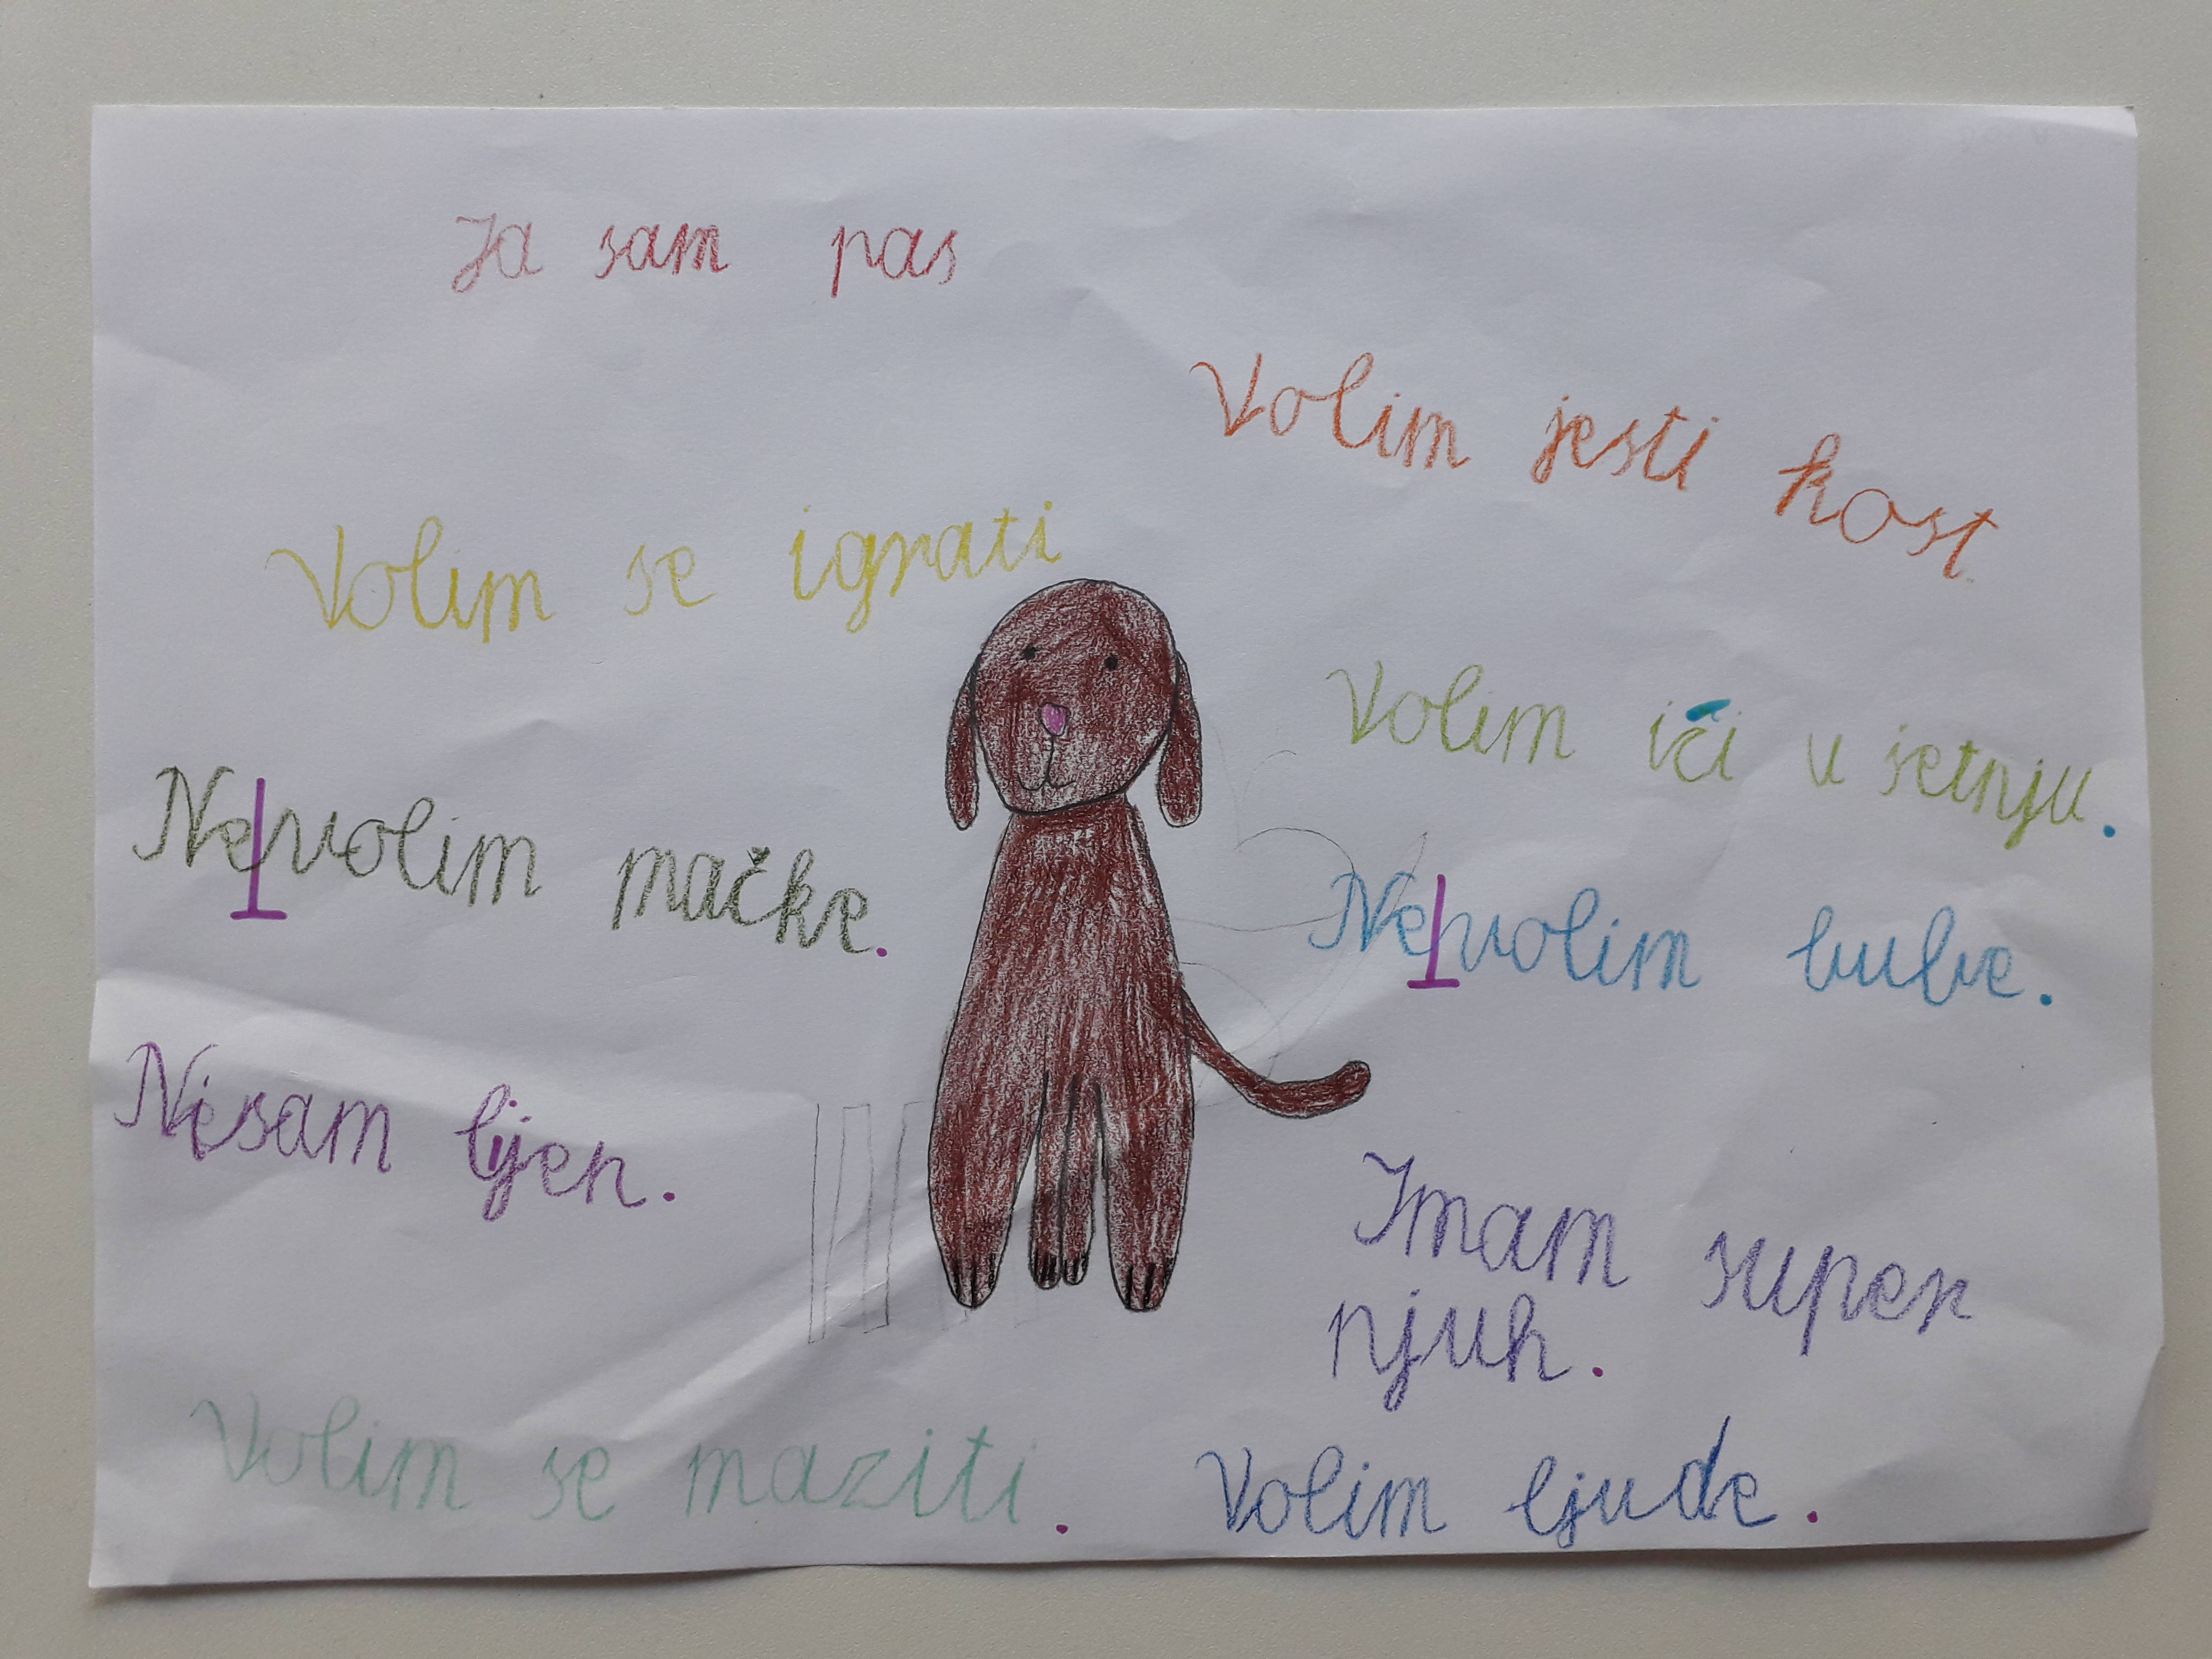 Ja sam pas
Volim jesti kost
Volim se igrati
Volim ići u šetnju.
Ne volim mačke.
Ne volim bube.
Nisam ljen.
Imam super
njuh.
Volim se maziti.
Volim ljude.